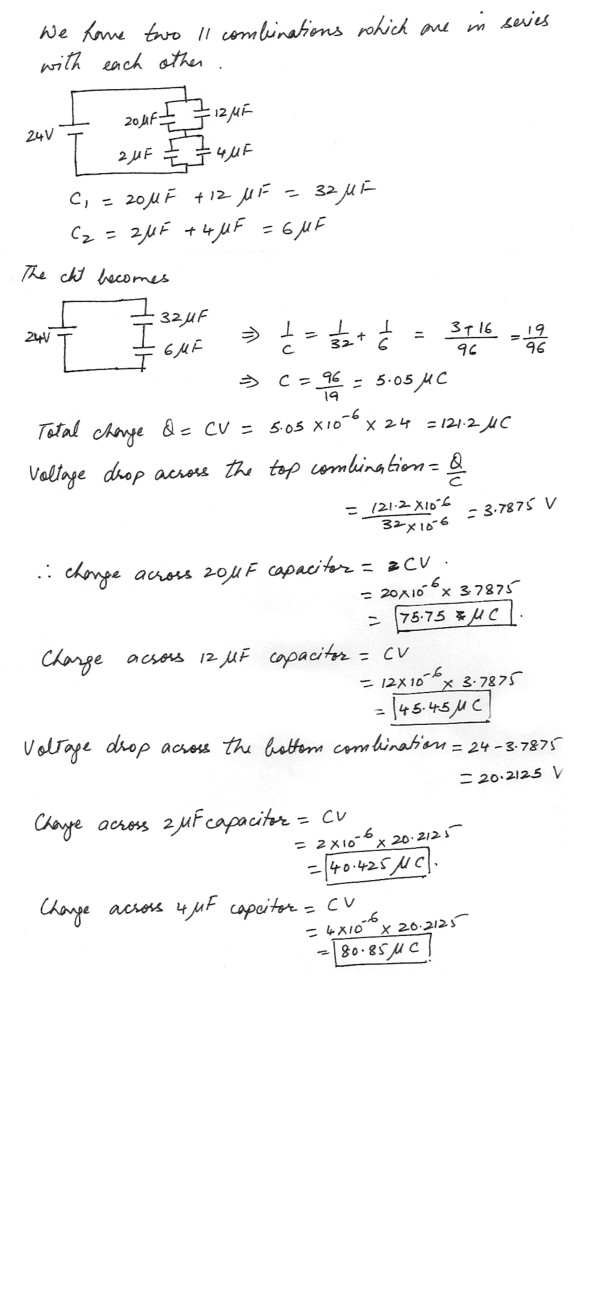 We have two 11 combinations which are in series
with each other.
20μF 12μF
24V
2μF 4μF
C₁ = 20μF + 12 μF = 32μF
C₂ = 2μF + 4μF = 6μF
The ckt becomes
32μF
24V
6μF
⇒ 1/C = 1/32 + 1/6 = 3+16/96 = 19/96
⇒ C = 96/19 = 5.05 μC
Total charge Q = CV = 5.05 × 10⁻⁶ × 24 = 121.2 μC
Voltage drop across the top combination = Q/C
= 121.2 × 10⁻⁶/32 × 10⁻⁶ = 3.7875 V
∴ charge across 20μF capacitor = CV.
= 20×10⁻⁶ × 3.7875
= 75.75 μC.
Charge across 12 μF capacitor = CV
= 12 × 10⁻⁶ × 3.7875
= 45.45 μC
Voltage drop across the bottom combination = 24 - 3.7875
= 20.2125 V
Charge across 2μF capacitor = CV
= 2 × 10⁻⁶ × 20.2125
= 40.425 μC.
Charge across 4μF capacitor = CV
= 4×10⁻⁶ × 20.2125
= 80.85 μC